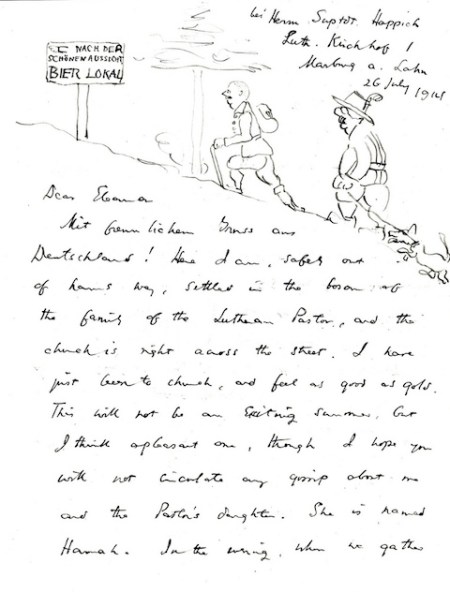 bei Herrn Suptdt. Happich
Luth. Kirchhof 1
Marburg a. Lahn
26 July 1914
NACH DER
SCHÖNEN AUSSICHT
BIER LOKAL
Dear Eleanor
Mit freundlichem Gruss aus
Deutschland! Here I am, safely out
of harms way, settled in the bosom of
the family of the Lutheran Pastor, and the
church is right across the street. I have
just been to church, and feel as good as gold.
This will not be an exciting summer, but
I think a pleasant one, though I hope you
will not circulate any gossip about me
and the Pastor's daughter. She is named
Hannah. In the evening, when we gather